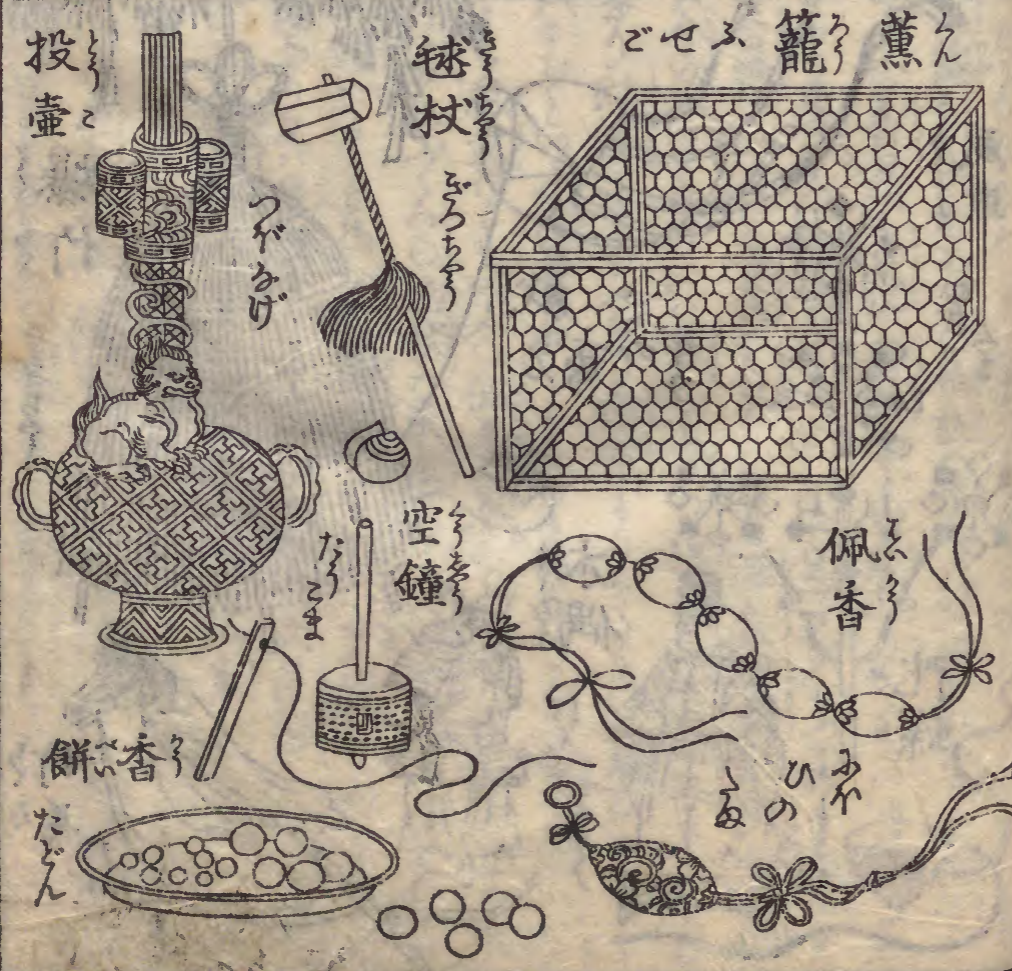 薫籠
くんろう
ふせご
毬杖
きうちやう
ぎつちやう
投壺
とうこ
つぼなげ
佩香
はいかう
にほ
ひの
たま
空鐘
くうしやう
たうこま
香餅
かうべい
たどん